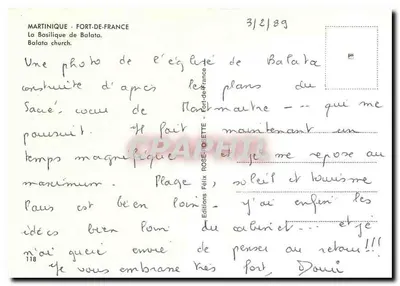 MARTINIQUE - FORT-DE-FRANCE
La Basilique de Balata.
Balata church.
3/2/89
Une photo de l'église de Balata
construite d'après les plans du
Sacré-coeur de Montmartre --- qui me
poursuit. Il fait maintenant un
temps magnifique et je me repose au
maximum. Plage, soleil et tourisme
Paris est bien loin - j'ai enfin les
idées bien loin du cabinet... et je
n'ai guère envie de penser au retour!!!
Je vous embrasse très fort,
118
Editions Félix ROSE-ROSETTE - Fort-de-France
CPAPHIL